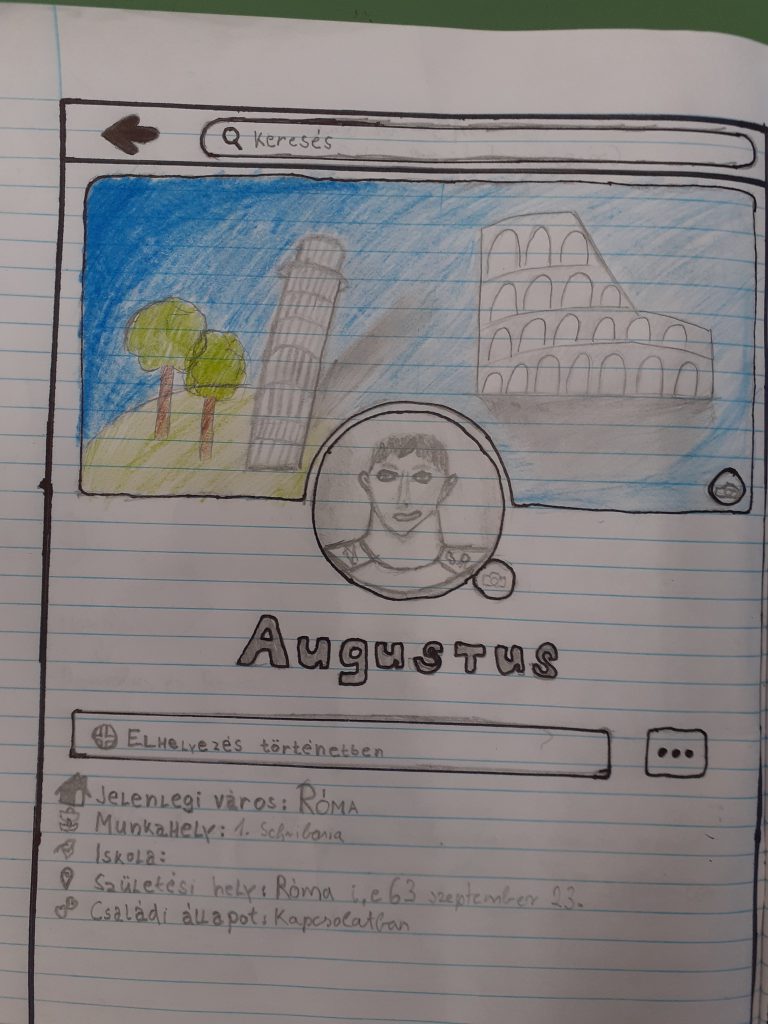 Keresés
Augustus
Elhelyezés történetben
Jelenlegi város: Róma
Munkahely: 1. Schribonia
Iskola:
Születési hely: Róma i.e 63 szeptember 23.
Családi állapot: Kapcsolatban